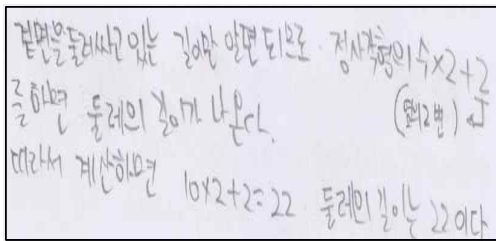 겉면을 둘러싸고 있는 길이만 알면 되므로 정사각형의 수×2+2
를 하면 둘레의 길이가 나온다. (옆에 2변)
따라서 계산하면 10×2+2=22 둘레의 길이는 22이다